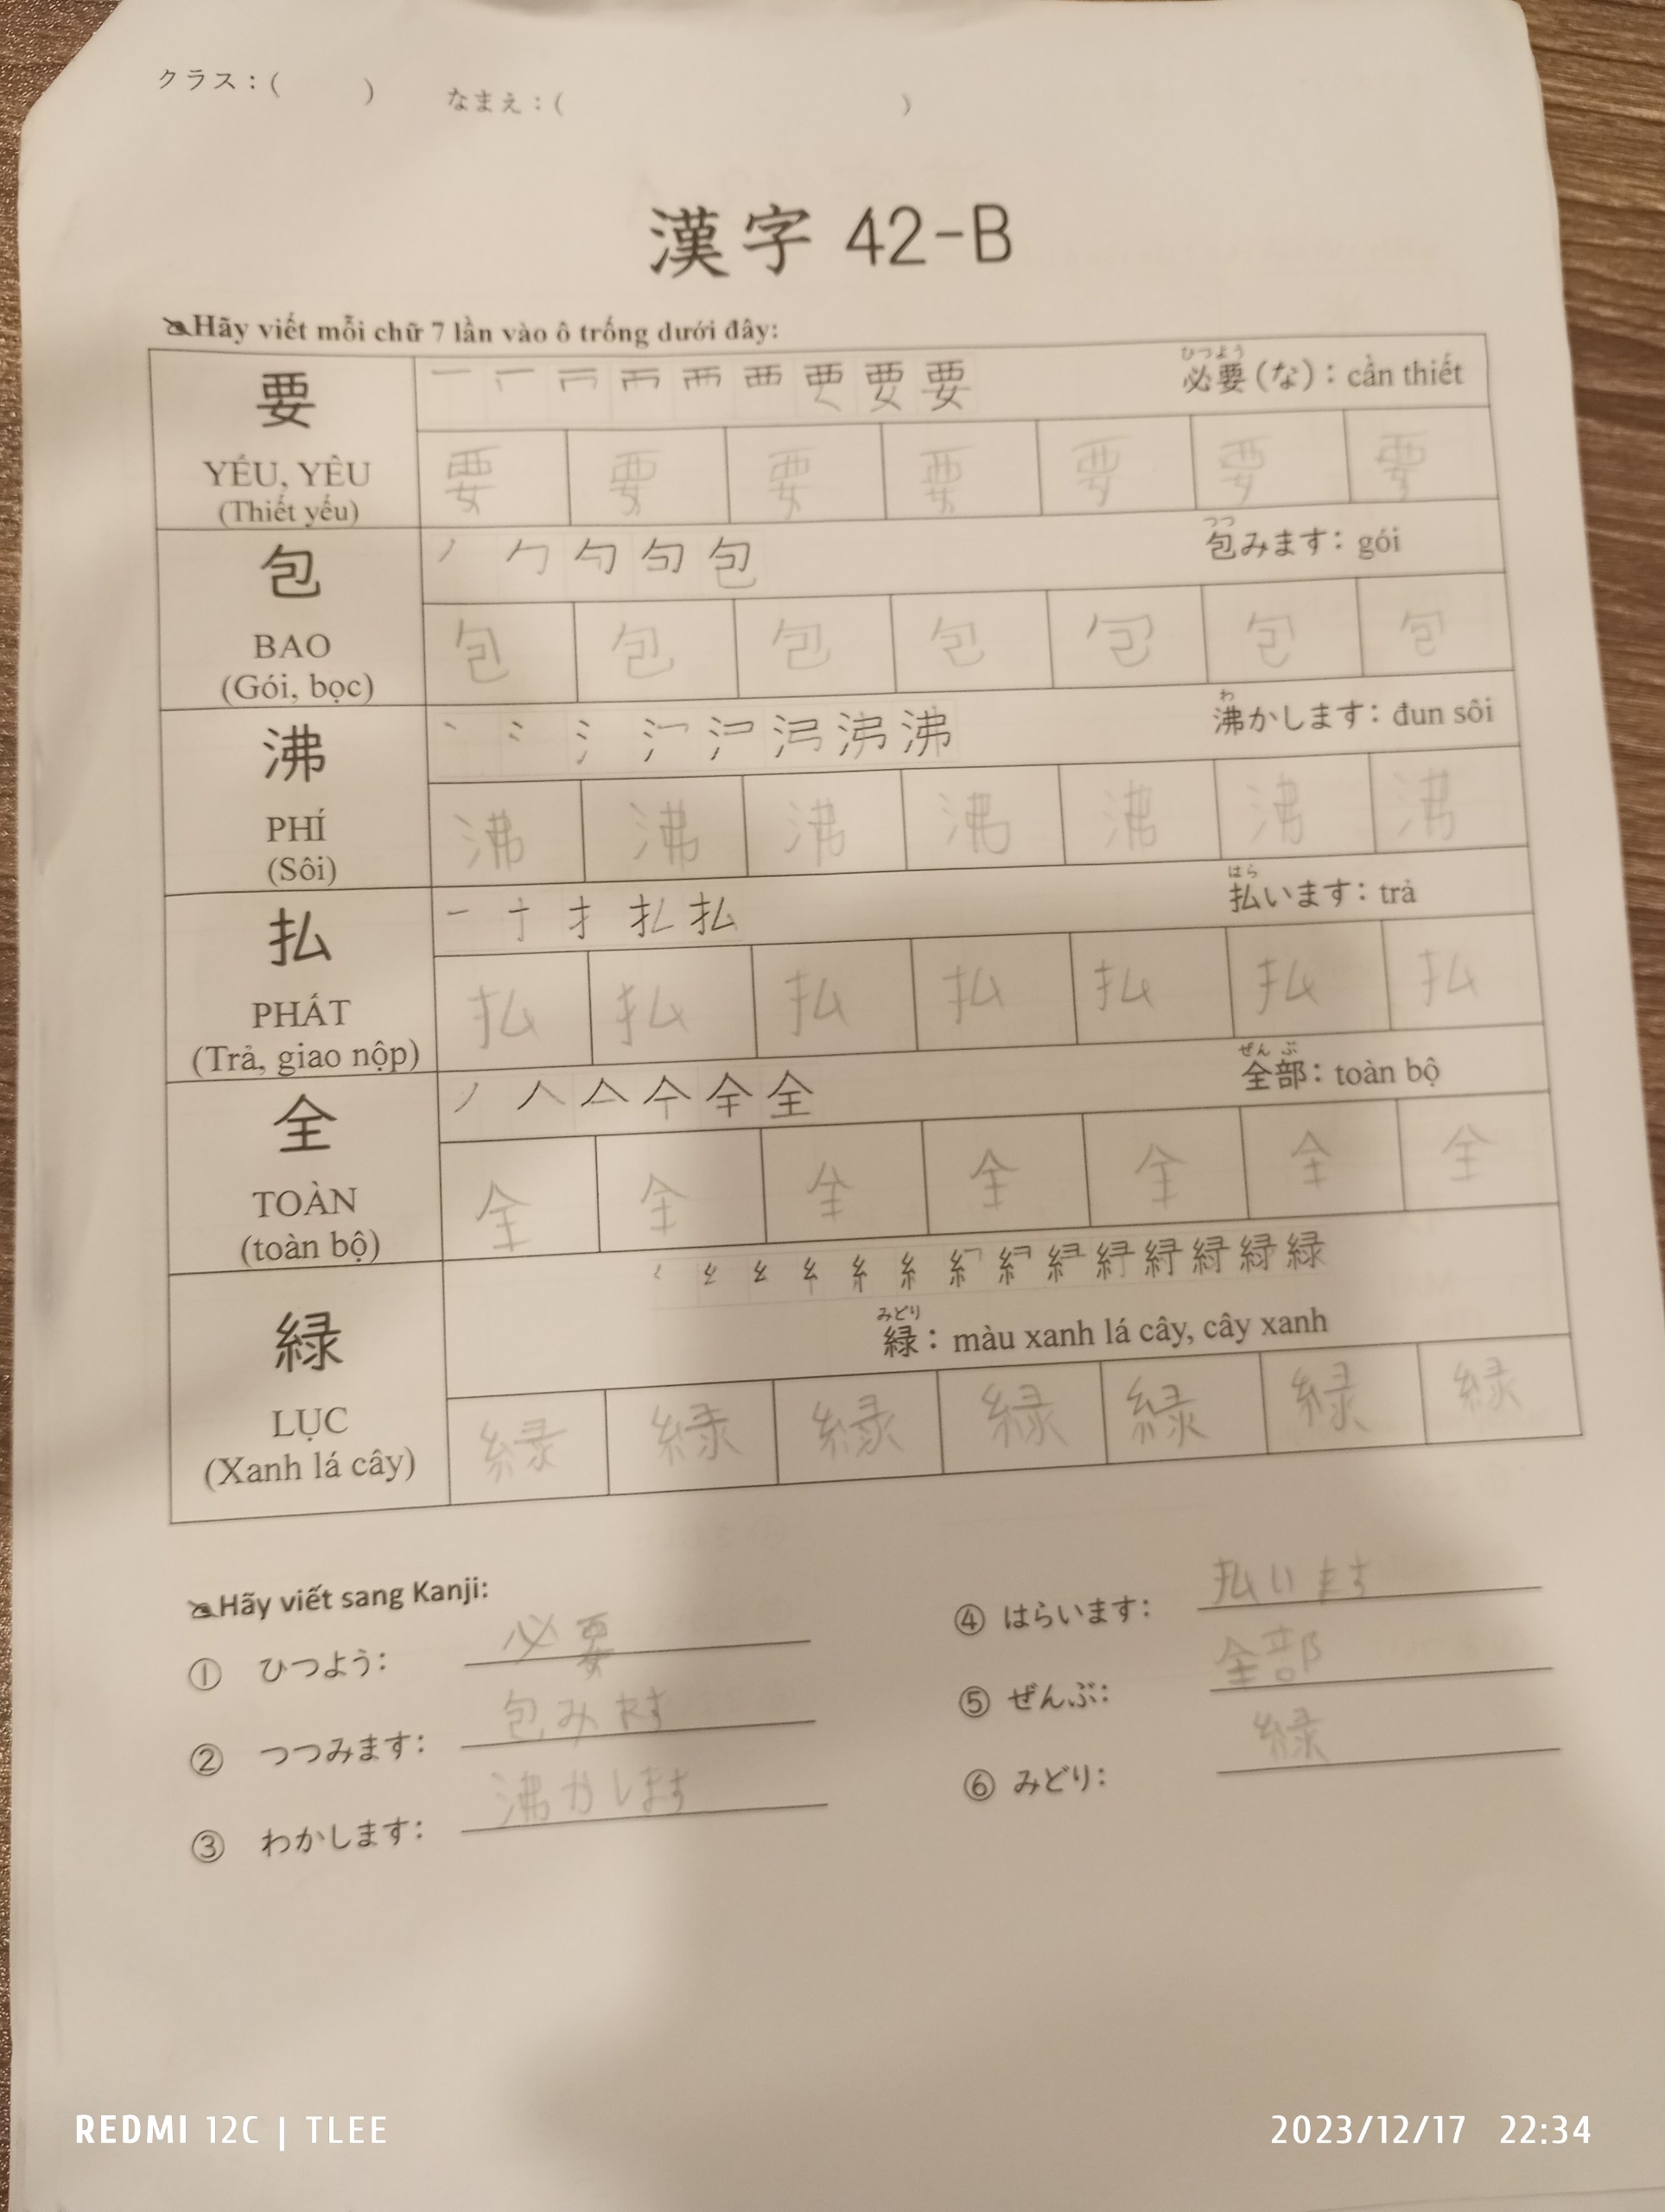 クラス：(　　　)　　なまえ：(　　　　　　　　　)
漢字 42-B
Hãy viết mỗi chữ 7 lần vào ô trống dưới đây:
要
YẾU, YÊU
(Thiết yếu)
ひつよう
必要(な)：cần thiết
要 要 要 要 要 要 要
包
BAO
(Gói, bọc)
つつ
包みます：gói
包 包 包 包 包 包 包
沸
PHÍ
(Sôi)
わ
沸かします：đun sôi
沸 沸 沸 沸 沸 沸 沸
払
PHẤT
(Trả, giao nộp)
はら
払います：trả
払 払 払 払 払 払 払
全
TOÀN
(toàn bộ)
ぜんぶ
全部：toàn bộ
全 全 全 全 全 全 全
緑
LỤC
(Xanh lá cây)
みどり
緑：màu xanh lá cây, cây xanh
緑 緑 緑 緑 緑 緑 緑
Hãy viết sang Kanji:
① ひつよう： 必要
② つつみます： 包みます
③ わかします： 沸かします
④ はらいます： 払います
⑤ ぜんぶ： 全部
⑥ みどり： 緑
REDMI 12C | TLEE
2023/12/17 22:34